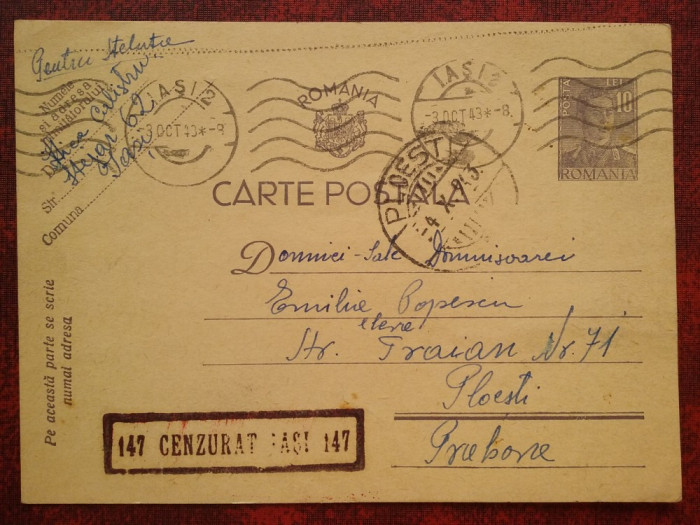 Pentru Steluție
Numele
și adresa
Str.
Comuna
Stejar 62
Iași
IAȘI 2
-3.OCT 43*-8.
ROMANIA
IAȘI 2
-3.OCT 43*-8.
POSTA
LEI
10
ROMANIA
CARTE POSTALA
PLOEȘTI
Domnici-Sale Domnisoarei
Emilie Popescu
elevе
Str. Traian Nr. 71
Ploești
Prahova
Pe această parte se scrie
numai adresa
147 CENZURAT IAȘI 147